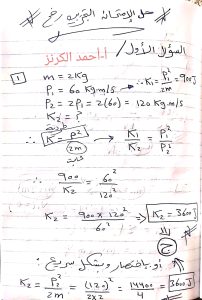 حل الامتحان التجريبي رقم
السؤال الأول / أ. احمد الكرنز
1 m = 2Kg → K₁ = P₁²/2m = 900 J
P₁ = 60 Kg.m/s
P₂ = 2P₁ = 2(60) = 120 Kg.m/s
K₂ = ?
طريقة
K = P²/2m ⇒ K₁/K₂ = P₁²/P₂²
ثابت
900/K₂ = 60²/120²
K₂ = 900 × 120²/60² ⇒ K₂ = 3600 J
ج
أو باختصار وبشكل سريع:
K₂ = P₂²/2m = (120)²/2×2 = 14400/4 = 3600 J